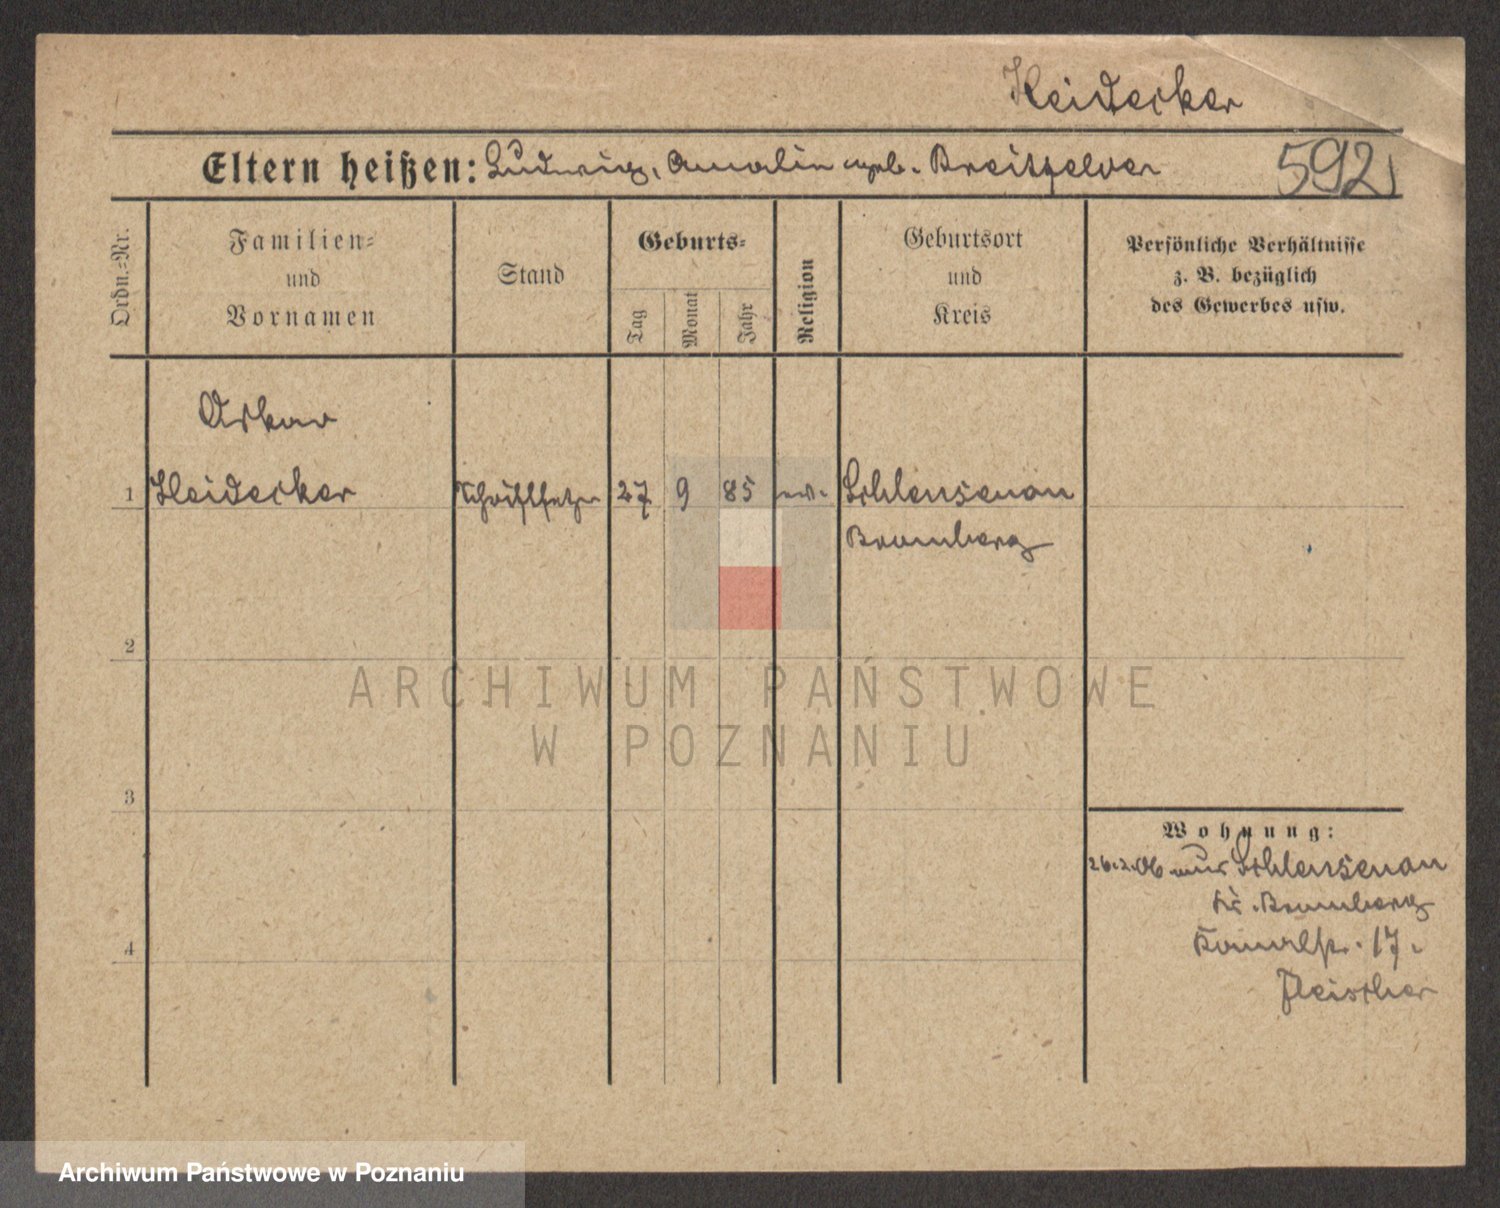 Heidecker
Eltern heißen: Ludwig, Amalie geb. Breitfelder 592
Ordn.=Nr.
Familien=
und
Vornamen
Stand
Geburts=
Tag
Monat
Jahr
Religion
Geburtsort
und
Kreis
Persönliche Verhältnisse
z. B. bezüglich
des Gewerbes usw.
Oskar
1 Heidecker Schriftsetzer 27 9 85 ev. Schleusenau
Bromberg
2
3
4
Wohnung:
26.2.06 aus Schleusenau
Kr. Bromberg
Kanalstr. 17.
Fleischer
ARCHIWUM PAŃSTWOWE
W POZNANIU
Archiwum Państwowe w Poznaniu